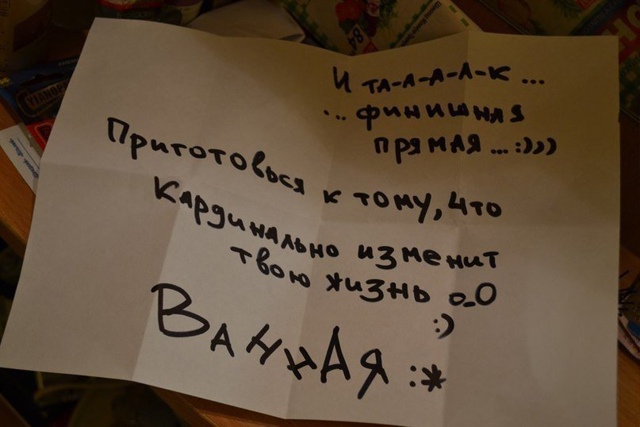 И ТА-А-А-А-К...
...ФИНИШНАЯ
ПРЯМАЯ...:)))
Приготовься к тому, что
Кардинально изменит
твою жизнь o_O
:)
ВАННАЯ :*